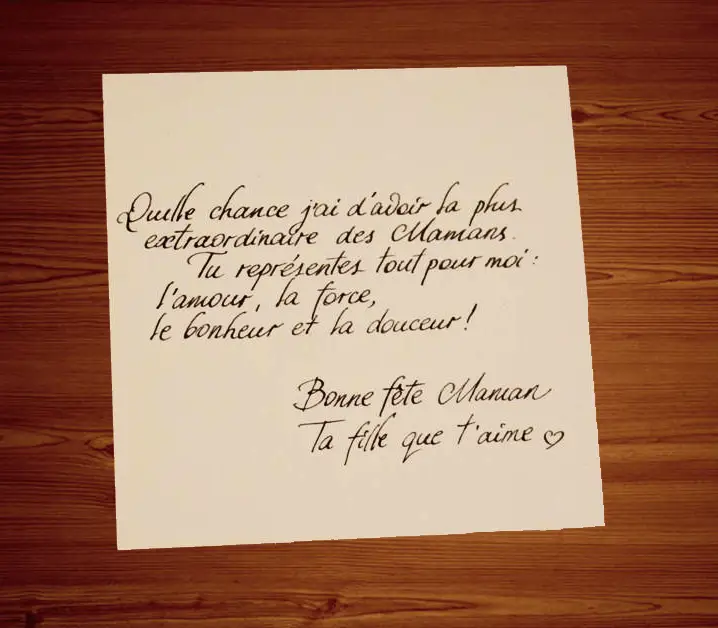 Quelle chance j'ai d'avoir la plus
extraordinaire des Mamans.
Tu représentes tout pour moi :
l'amour, la force,
le bonheur et la douceur !
Bonne fête Maman
Ta fille que t'aime ♡